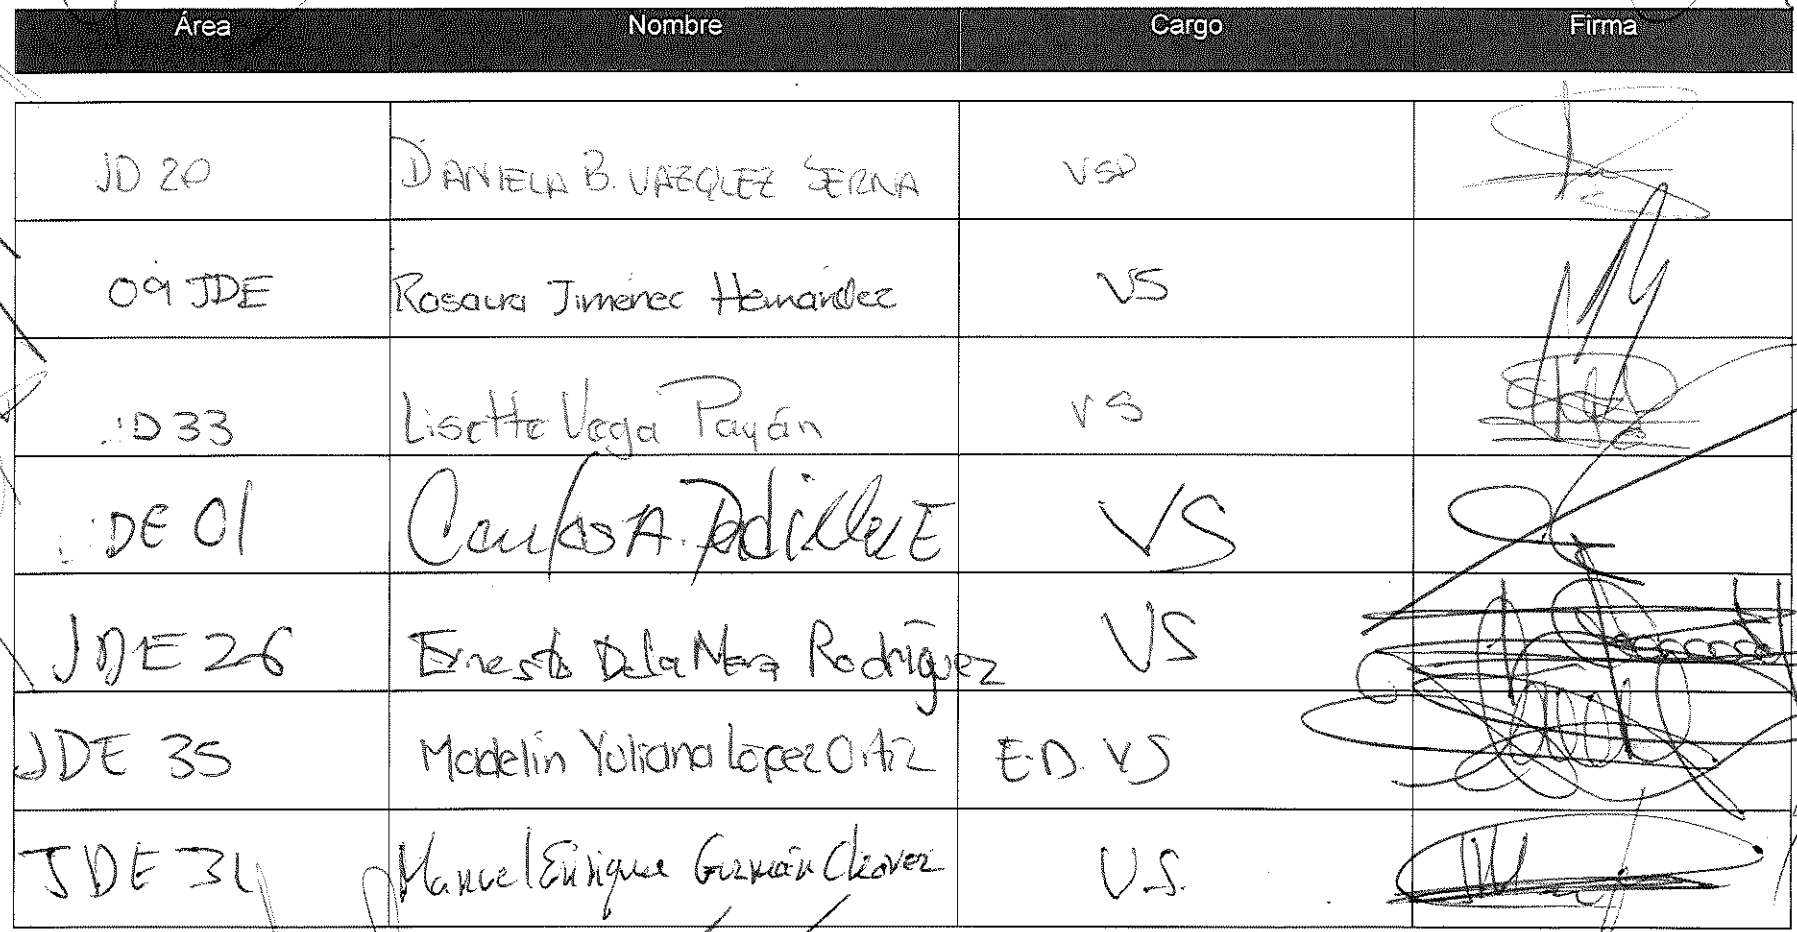 Área Nombre Cargo Firma
JD 20 DANIELA B. VAZQUEZ SERNA VSD
09 JDE Rosaura Jiménez Hernández VS
JD 33 Lisette Vega Payán VS
JDE 01 Carlos A. Padilla E VS
JDE 26 Ernesto De la Mora Rodríguez VS
JDE 35 Madelin Yuliana López Ortiz E.D. VS
JDE 31 Manuel Enrique Guzmán Chávez V.S.